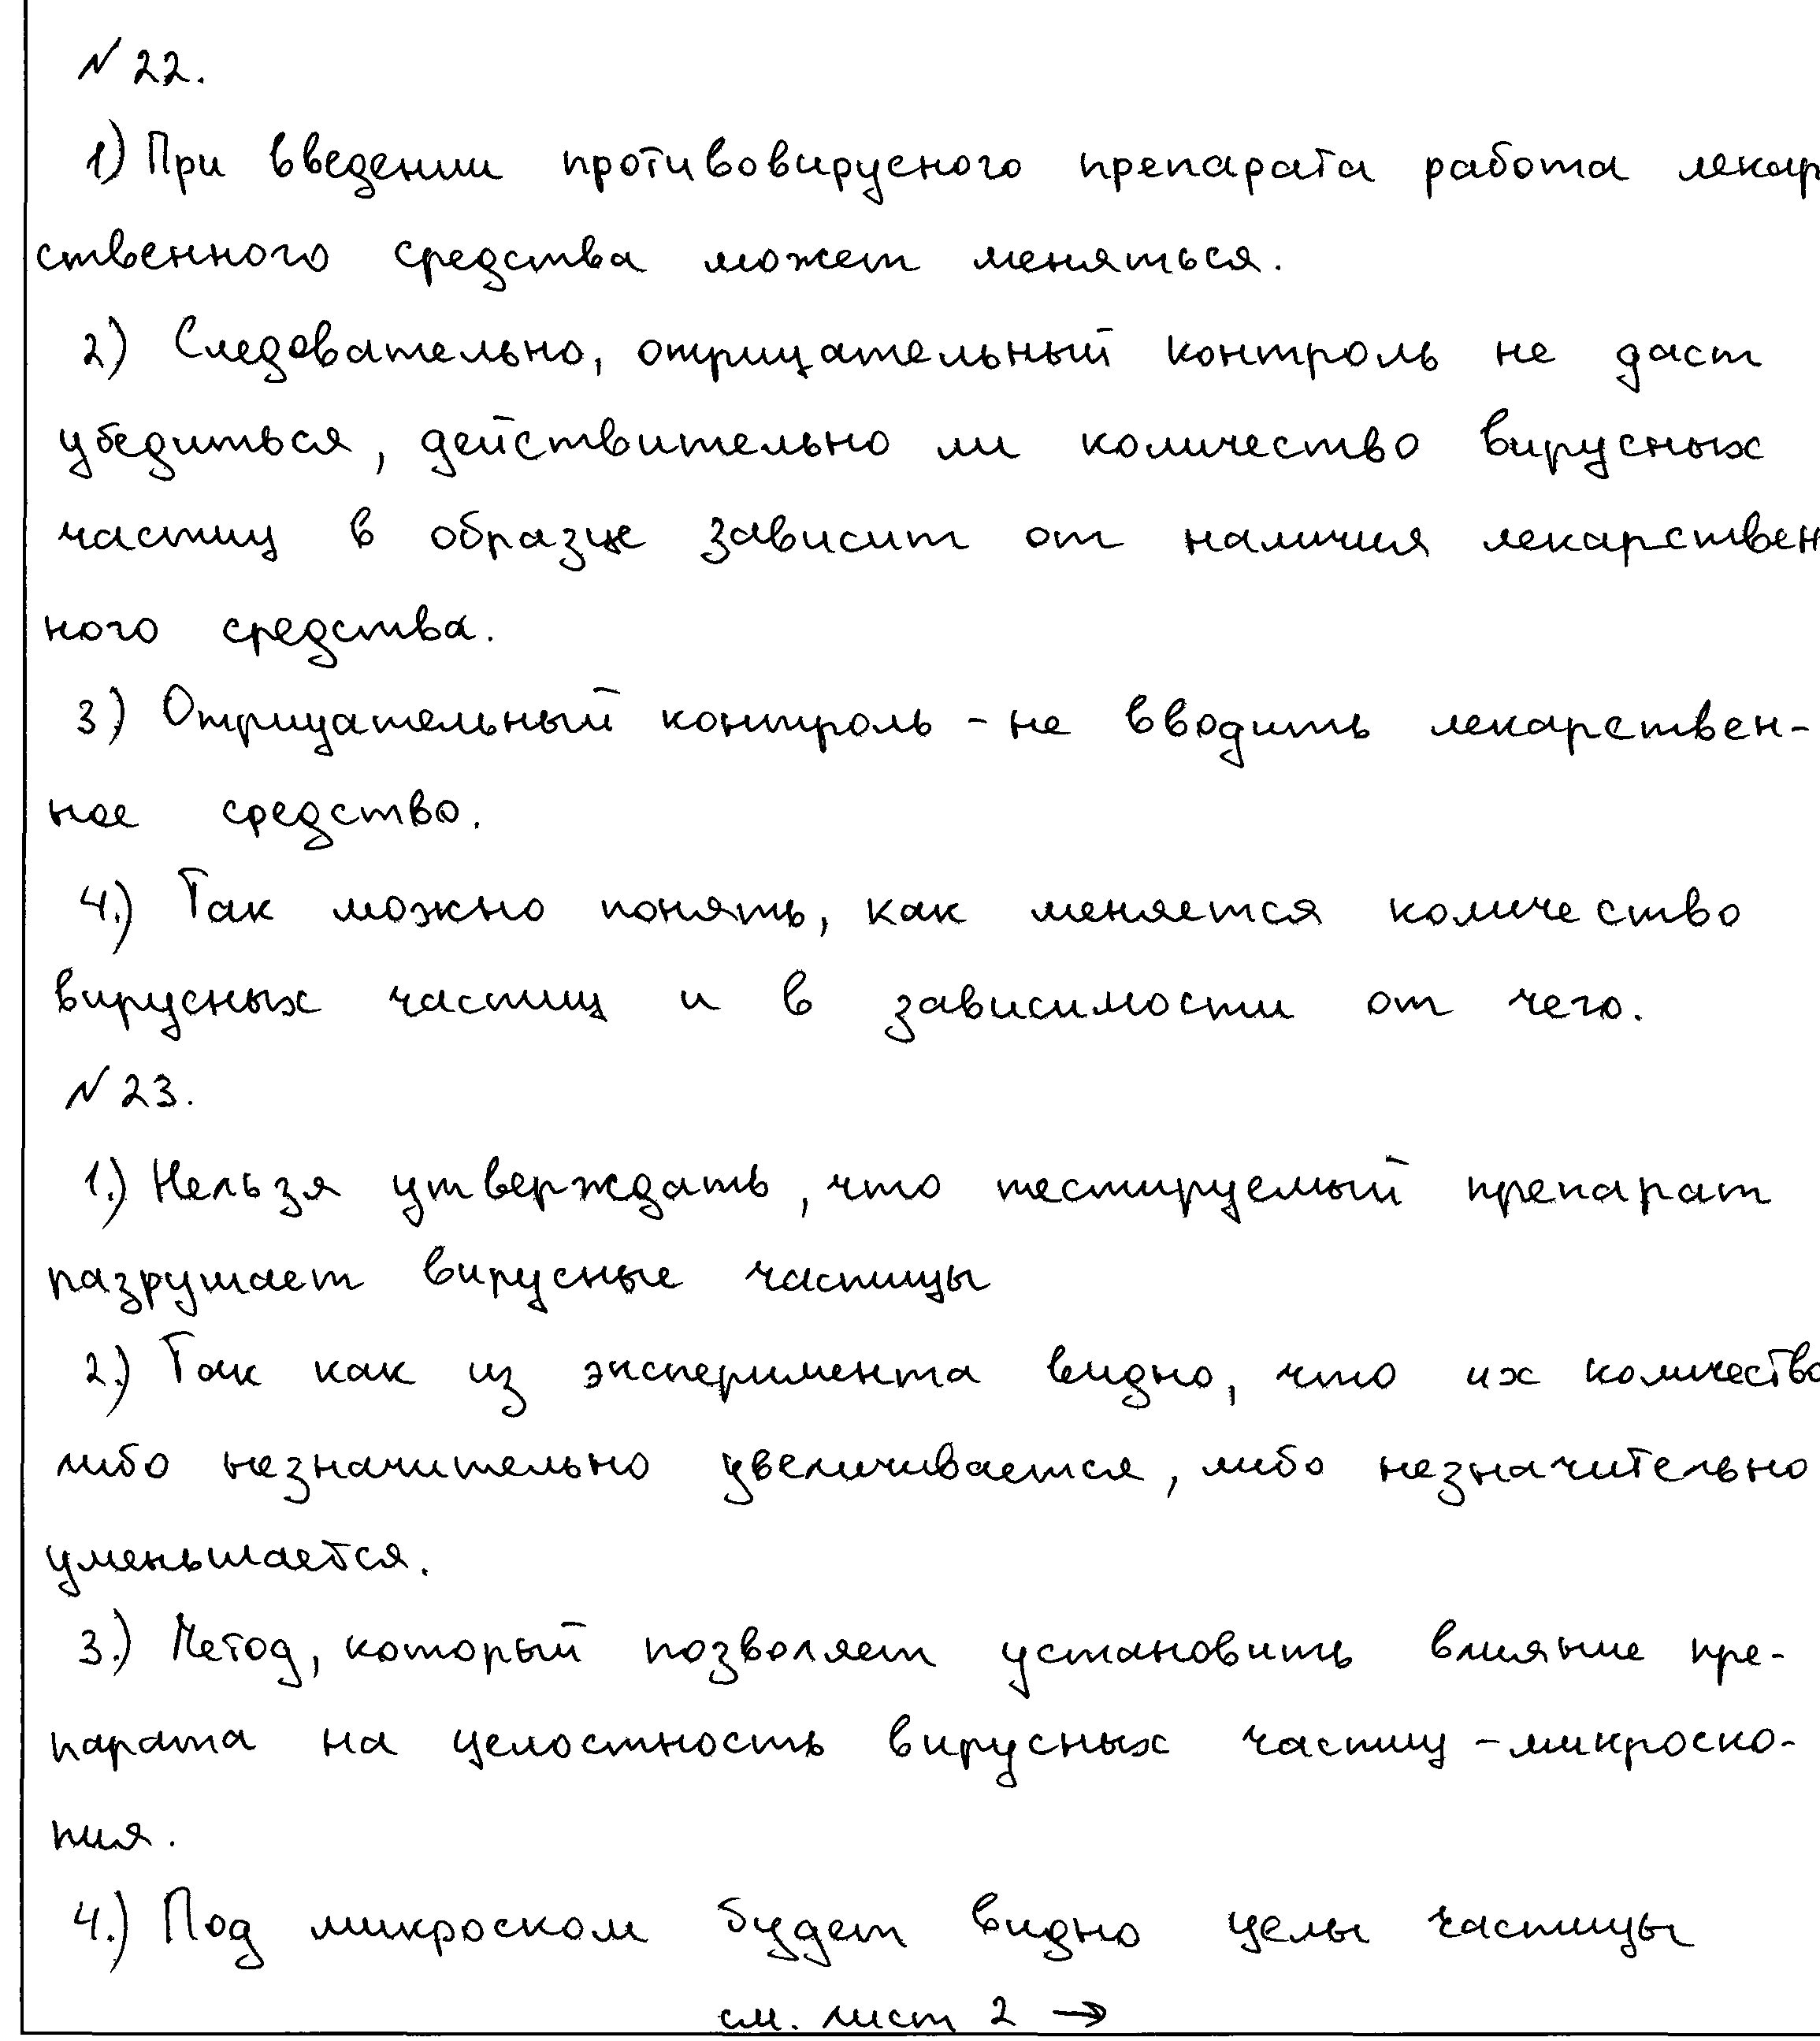 № 22.
1) При введении противовирусного препарата работа лекар
ственного средства может меняться.
2) Следовательно, отрицательный контроль не даст
убедиться, действительно ли количество вирусных
частиц в образце зависит от наличия лекарствен
ного средства.
3) Отрицательный контроль - не вводить лекарствен-
ное средство.
4.) Так можно понять, как меняется количество
вирусных частиц и в зависимости от чего.
№ 23.
1.) Нельзя утверждать, что тестируемый препарат
разрушает вирусные частицы
2.) Так как из эксперимента видно, что их количество
либо незначительно увеличивается, либо незначительно
уменьшается.
3.) Метод, который позволяет установить влияние пре-
парата на целостность вирусных частиц - микроско-
пия.
4.) Под микроском будет видно целы частицы
см. лист 2 →